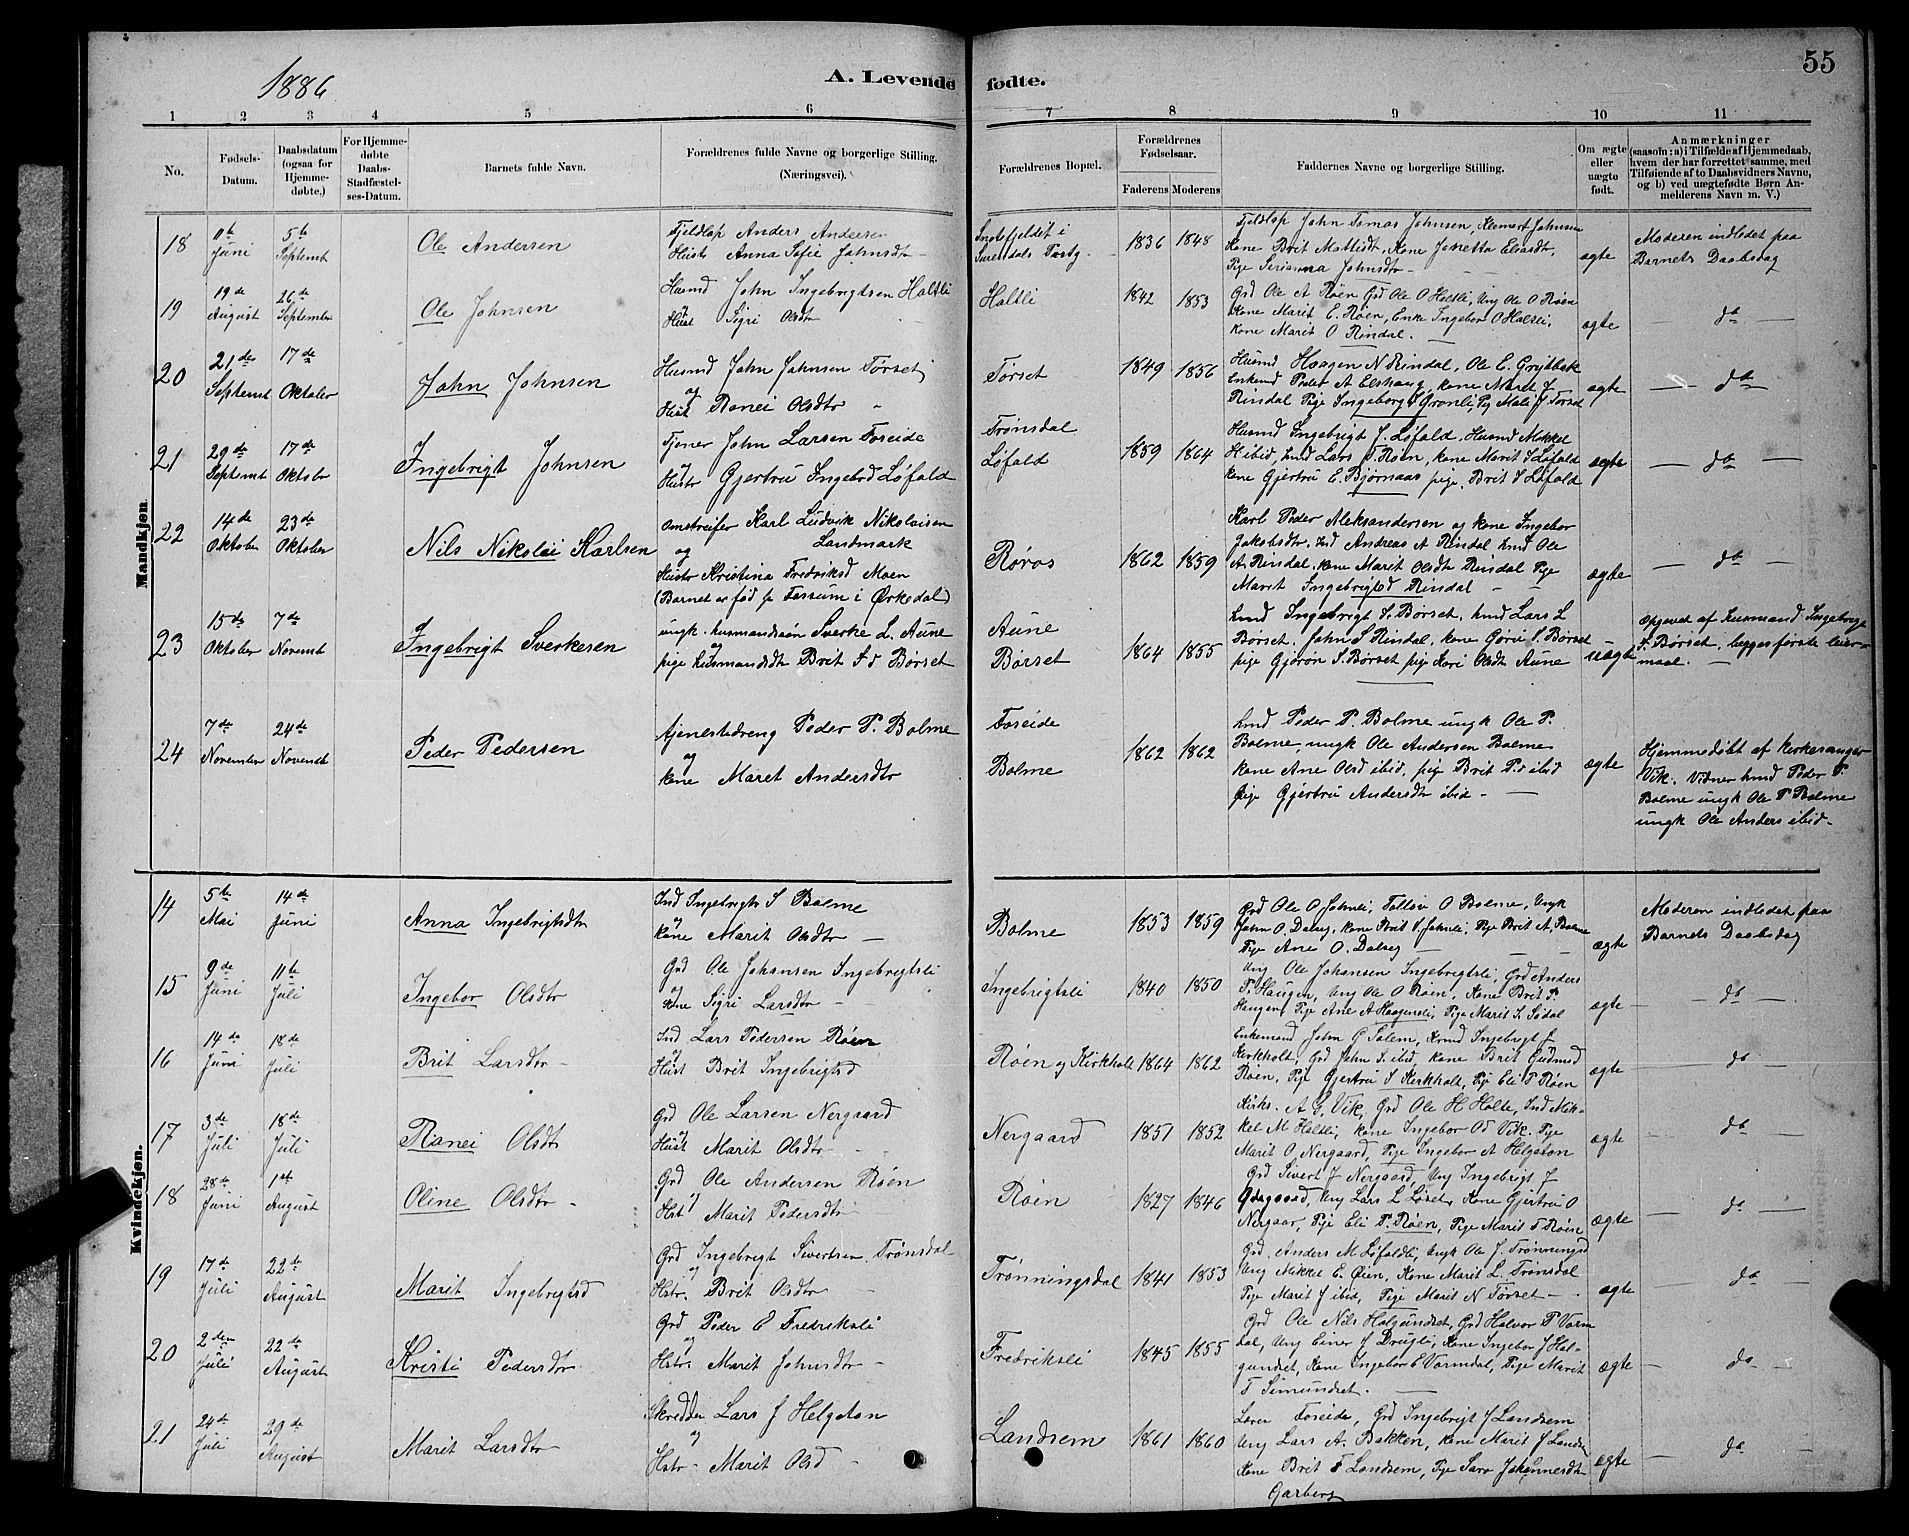 55
1886
A. Levende fødte.
1 2 3 4 5 6 7 8 9 10 11
No.
Fødsels-Datum.
Daabsdatum (ogsaa for Hjemme-døbte.)
For Hjemme-døbte Daabs-Stadfæstel-ses-Datum.
Barnets fulde Navn.
Forældrenes fulde Navne og borgerlige Stilling. (Næringsvei).
Forældrenes Bopæl.
Forældrenes Fødselsaar.
Faderens Moderens
Faddernes Navne og borgerlige Stilling.
Om ægte eller uægte født.
Anmærkninger (saasom: a) i Tilfælde af Hjemmedaab, hvem der har forrettet samme, med Tilføiende af to Daabsvidners Navne, og b) ved uægtefødte Børn An-melderens Navn m. V.)
Mandkjøn
18
11te Juni
5te Septemb
Ole Andersen
Fjeldlap Anders Andersen
Hustr Anna Sofie Johnsdtr
i Surendals Præstg.
1836 1848
Fjeldlap John Tomas Johnsen, Klemert Johnsen
Kone Brit Mattisdt, Kone Jonetta Elsasdt,
Pige Serianna Johnsdtr
ægte
Moderen indledet paa
Barnets Daabsdag
19
19de August
26de September
Ole Johnsen
Husmd John Ingebrigtsen Haltli
og
Hust Sigri Olsdtr
Haltli
1842 1853
Grd Ole A Røen Grd Ole O Haltli, Ung Ole O Røen
Kone Marit E. Røen, Enke Ingebor O Halsli,
kone Marit O Rindal.
ægte
do
20
21de Septembr
17de Oktober
John Johnsen
Husmd John Johnsen Tørset
og
Hust Ranei Olsdtr
Tørset
1849 1856
Husmd Haagen N Rindal, Ole E. Grytbak
Enkemd Peder A Elshaug, kone Maret J
Rindal Pige Ingeborg S Grønli, Pig Mali J Tørset
ægte
do
21
29de Septembr
17de Oktober
Ingebrigt Johnsen
Tjener John Larsen Foseide
og
Hustr Gjertru Ingebrd Løfald
Trønsdal
Løfald
1859 1864
Husmd Ingebrigt J. Løfald, Husmd Mikkel
H ibid, Lars T. Røen, kone Marit I Løfald
kone Gjertru E. Bjørnaas pige, Brit I Løfald
ægte
do
22
14de Oktober
23de Oktober
Nils Nikolai Karlsen
Omstreifer Karl Ludvik Nikolaisen
Landmark
og
Hustr Kristina Fredriksd Moen
(Barnet er fød p Fossum i Ørkedal)
Røros
1862 1859
Karl Peder Aleksandersen og kone Ingebor
Jakobsdtr, Ind Andreas A Rindal hmd Ole
A. Rindal, kone Marit Olsdt Rindal Pige
Marit Ingebrigtsd Rindal
ægte
do
23
15de Oktober
7de Novemb
Ingebrigt Sverkesen
ungk. husmandssøn Sverke L. Aune
og
pige husmandsdt Brit Id Børset
Aune
Børset
1864 1855
hmd Ingebrigt S. Børset, hmd Lars L
Børset, John S Rindal, kone Gøri S. Børset
pige Gjøron S. Børset pige Kari Olsdt Aune
uægte
Opgivet af husmand Ingebrigt
F. Børset, begges første leier-
maal.
24
7de November
24de Novemb
Peder Pedersen
tjenestedreng Peder P. Bolme
og
kone Maret Andersdtr
Foseide
Bolme
1862 1862
hmd Peder P. Bolme ungk Ole P.
Bolme, ungk Ole Andersen Bolme
kone Ane Olsd ibid, pige Brit Pd ibid
Pige Gjertru Andersdtr ibid
ægte
Hjemmedøbt af kirkesanger
Vik. Vidner hmd Peder P.
Bolme ungk Ole P Bolme
ungk Ole Anders ibid
Kvindekjøn.
14
5te Mai
14de Juni
Anna Ingebrigtsdtr
Ind Ingebrigt S Bolme
og
Kone Marit Olsdtr
Bolme
1853 1859
Grd Ole O Johnli, O Bolme, Ungk
John O. Dalseg, kone Brit S. Johnli, Pige Brit A. Bolme
Pige Ane O. Dalseg
ægte
Moderen indledet paa
Barnets Daabsdag
15
9de Juni
11te Juli
Ingebor Olsdtr
Grd Ole Johansen Ingebrigtsli
og
Kone Sigri Larsdtr
Ingebrigtsli
1840 1850
Ung Ole Johansen Ingebrigtsli, Grd Anders
F. Haugen, Ung Ole O Røen, Kone Brit P.
Haugen, Pige Ane A Haagenli, Pige Marit S. Sødal
ægte
do
16
14de Juni
18de Juli
Brit Larsdtr
Ind Lars Pedersen Røen
og
Hust Brit Ingebrigtsd
Røen og Kirkholt
1864 1862
Enkemand John G Solem, Kmd Ingebrigt J
Kirkholt, Grd John S. ibid, kone Brit Gudmd
Røen, Pige Gjertru S Kirkholt, Pige Eli P Røen
ægte
do
17
3de Juli
18de Juli
Ranei Olsdtr
Grd Ole Larsen Nergaard
og
Hust Marit Olsdtr
Nergaard
1851 1852
Kirks. A G. Vik, Grd Ole H Holte, Ind Mik-
kel M Haltli, kone Ingebor Od Vik, Pige
Marit O. Nergaard, Pige Ingebor A Helgeton
ægte
do
18
28de Juni
1ste August
Oline Olsdtr
Grd Ole Andersen Røen
og
Hst Marit Pedersdtr
Røen
1827 1846
Grd Sivert J Nergaard, Ung Ingebrigt J
Ødegaard, Ung Lars L Løset, Kone Gjertru O
Nergaar, Pige Eli P. Røen, Pige Marit T Røen
ægte
do
19
17de Juli
22de August
Marit Ingebrigtsd
Grd Ingebrigt Sivertsen Trønsdal
og
Hstr. Brit Olsdtr
Trønningsdal
1841 1853
Grd. Anders M Løfaldli, Ungk Ole J. Trønningsd
Ung Mikkel E. Øien, Kone Marit L. Trønsdal
Pige Marit J ibid, Pige Marit N Tørset
ægte
do
20
2den Juli
22de August
Kristi Pedersdtr
Grd Peder E Fredriksli
og
Hstr. Marit Johnsdtr
Fredriksli
1845 1855
Grd Ole Nils Halgundset, Grd Halvor P Vorm
dal, Ung Einer J Drugli, Kone Ingebor J Hal-
gundset, Kone Ingebor E Vormdal, Pige Marit
T Simundset.
ægte
do
21
24de Juli
29de August
Marit Larsdtr
Skredder Lars J Helgeton
og
Hstr Marit Olsd
Landsem
1861 1860
Lærer Foseide, Grd Ingebrigt J Landsem
Ung Lars A. Bakken, Kone Marit J Landse
Kone Brit T Landsem, Pige Sara Johannesdt
Garberg
ægte
do